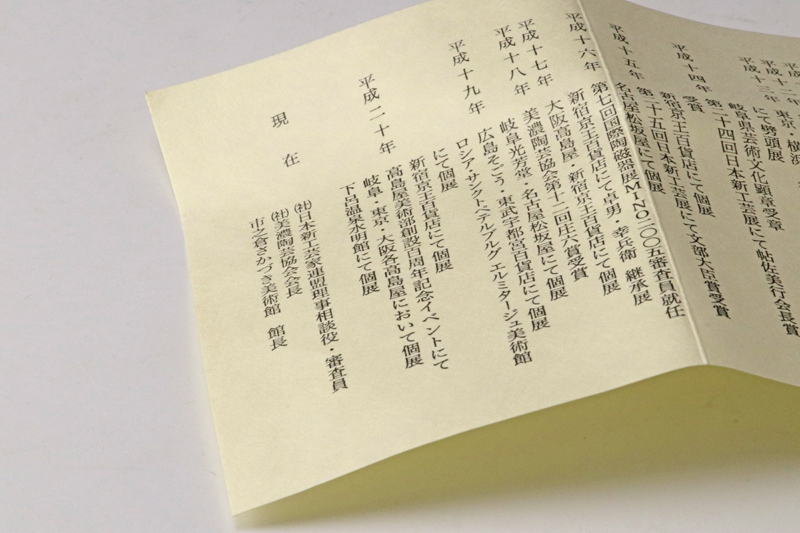 平成十二年 東京・横浜
にて劈頭展
平成十三年 岐阜県芸術文化顕彰受章
第二十四回日本新工芸展にて帖佐美行会長賞
受賞
平成十四年 新宿京王百貨店にて個展
第二十五回日本新工芸展にて文部大臣賞受賞
平成十五年 名古屋松坂屋にて個展
第七回国際陶磁器展MINO二〇〇五審査員就任
平成十六年 新宿京王百貨店にて卓男・幸兵衛 継承展
大阪高島屋・新宿京王百貨店にて個展
平成十七年 美濃陶芸協会第十二回庄六賞受賞
平成十八年 岐阜光芳堂・名古屋松坂屋にて個展
広島そごう・東武宇都宮百貨店にて個展
平成十九年 ロシア・サンクトペテルブルグ エルミタージュ美術館
にて個展
新宿京王百貨店にて個展
平成二十年 高島屋美術部創設百周年記念イベントにて
岐阜・東京・大阪各高島屋において個展
下呂温泉水明館にて個展
現在 ㈳日本新工芸家連盟理事相談役・審査員
㈳美濃陶芸協会会長
市之倉さかづき美術館 館長